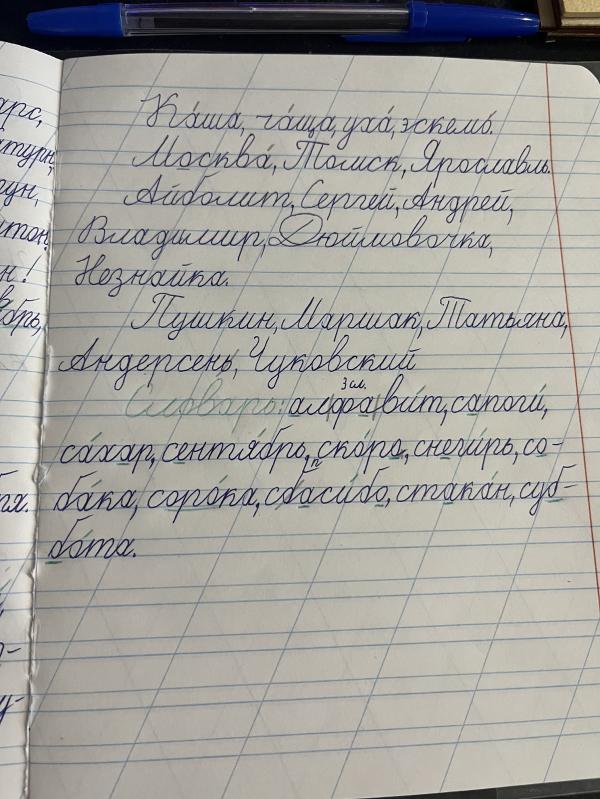 арс, Ка́ша, ча́ща, уха́, эскимо́.
Москва́, Томск, Ярославль.
Айболит, Сергей, Андрей,
Владимир, Дюймовочка,
н! Незнайка.
Пушкин, Маршак, Татьяна,
Андерсень, Чуковский
3 сл.
Словарь: алфави́т, сапоги́,
са́хар, сентя́брь, ско́ро, снеги́рь, со-
п
ба́ка, соро́ка, сбаси́бо, стака́н, суб-
бо́та.